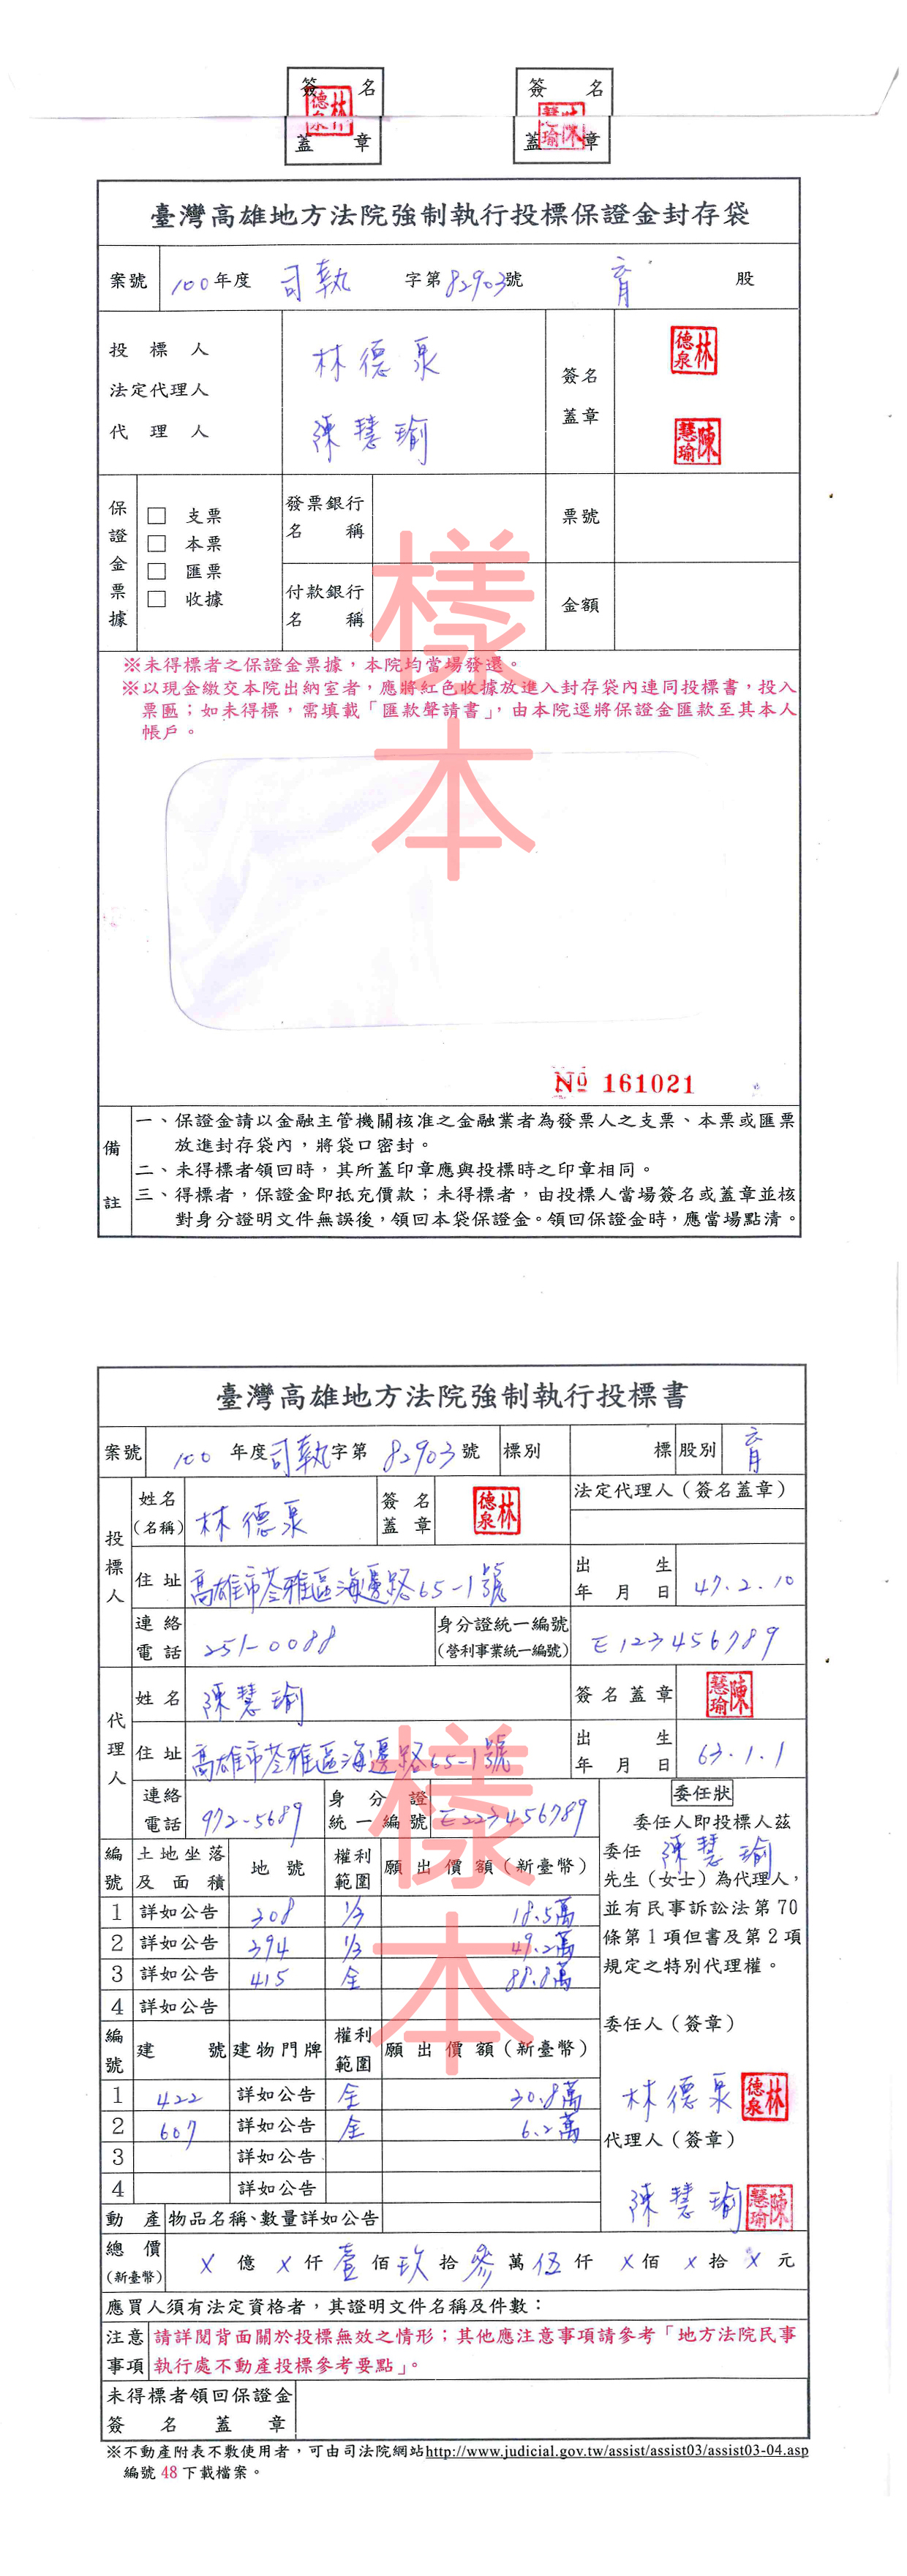 簽 名
林德泉
蓋 章
簽 名
陳慧瑜
蓋 章
臺灣高雄地方法院強制執行投標保證金封存袋
案號 100年度 司執 字第82903號 育 股
投標人 林德泉 簽名蓋章 林德泉
法定代理人
代理人 陳慧瑜 陳慧瑜
保證金票據 □ 支票 發票銀行名稱 票號
□ 本票
□ 匯票 付款銀行名稱 金額
□ 收據
※未得標者之保證金票據，本院均當場發還。
※以現金繳交本院出納室者，應將紅色收據放進入封存袋內連同投標書，投入
票匭；如未得標，需填載「匯款聲請書」，由本院逕將保證金匯款至其本人
帳戶。
樣本
№ 161021
備註
一、保證金請以金融主管機關核准之金融業者為發票人之支票、本票或匯票
放進封存袋內，將袋口密封。
二、未得標者領回時，其所蓋印章應與投標時之印章相同。
三、得標者，保證金即抵充價款；未得標者，由投標人當場簽名或蓋章並核
對身分證明文件無誤後，領回本袋保證金。領回保證金時，應當場點清。
臺灣高雄地方法院強制執行投標書
案號 100 年度司執字第 82903 號 標別 標 股別 育
投標人 姓名(名稱) 林德泉 簽名蓋章 林德泉 法定代理人（簽名蓋章）
住址 高雄市苓雅區海邊路65-1號 出生年月日 47.2.10
連絡電話 251-0088 身分證統一編號(營利事業統一編號) E123456789
代理人 姓名 陳慧瑜 簽名蓋章 陳慧瑜
住址 高雄市苓雅區海邊路65-1號 出生年月日 63.1.1
連絡電話 972-5689 身分證統一編號 E223456789
委任狀
委任人即投標人茲
委任 陳慧瑜
先生（女士）為代理人，
並有民事訴訟法第70
條第1項但書及第2項
規定之特別代理權。
委任人（簽章）
林德泉 林德泉
代理人（簽章）
陳慧瑜 陳慧瑜
編號 土地坐落及面積 地號 權利範圍 願出價額（新臺幣）
1 詳如公告 308 1/3 18.5萬
2 詳如公告 394 1/3 49.2萬
3 詳如公告 415 全 88.8萬
4 詳如公告
編號 建號 建物門牌 權利範圍 願出價額（新臺幣）
1 422 詳如公告 全 30.8萬
2 607 詳如公告 全 6.2萬
3 詳如公告
4 詳如公告
樣本
動產 物品名稱、數量詳如公告
總價(新臺幣) X 億 X 仟 壹 佰 玖 拾 參 萬 伍 仟 X 佰 X 拾 X 元
應買人須有法定資格者，其證明文件名稱及件數：
注意事項 請詳閱背面關於投標無效之情形；其他應注意事項請參考「地方法院民事
執行處不動產投標參考要點」。
未得標者領回保證金
簽名蓋章
※不動產附表不敷使用者，可由司法院網站http://www.judicial.gov.tw/assist/assist03/assist03-04.asp
編號 48 下載檔案。